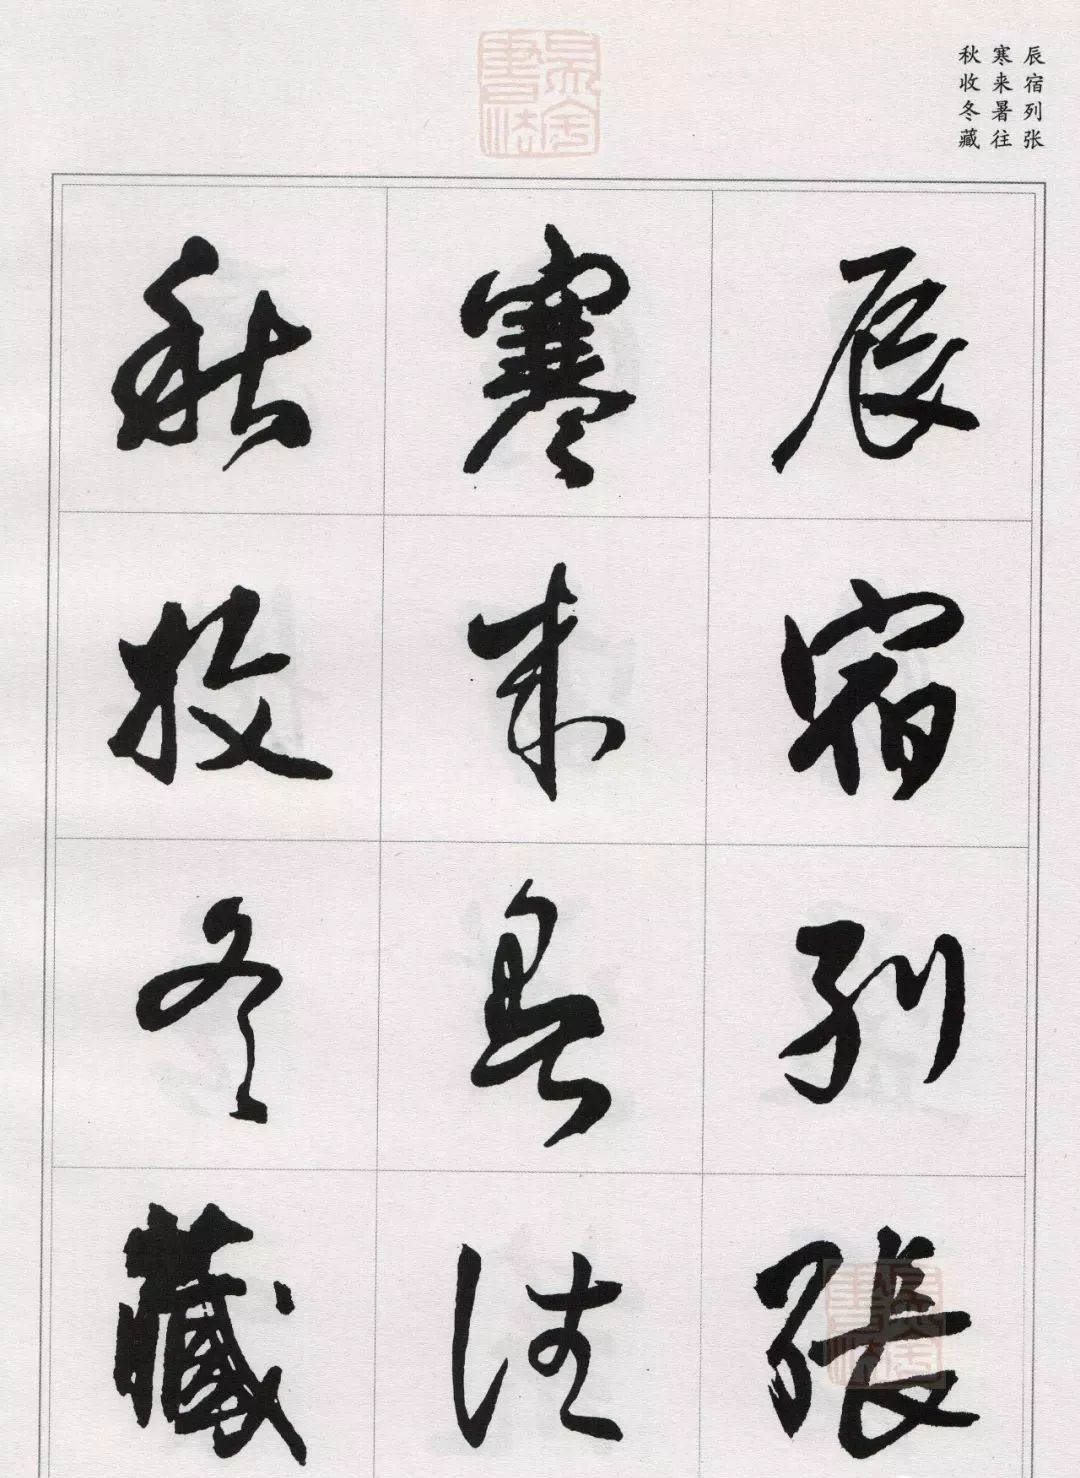 辰宿列张
寒来暑往
秋收冬藏
辰宿列張
寒来暑往
秋收冬藏